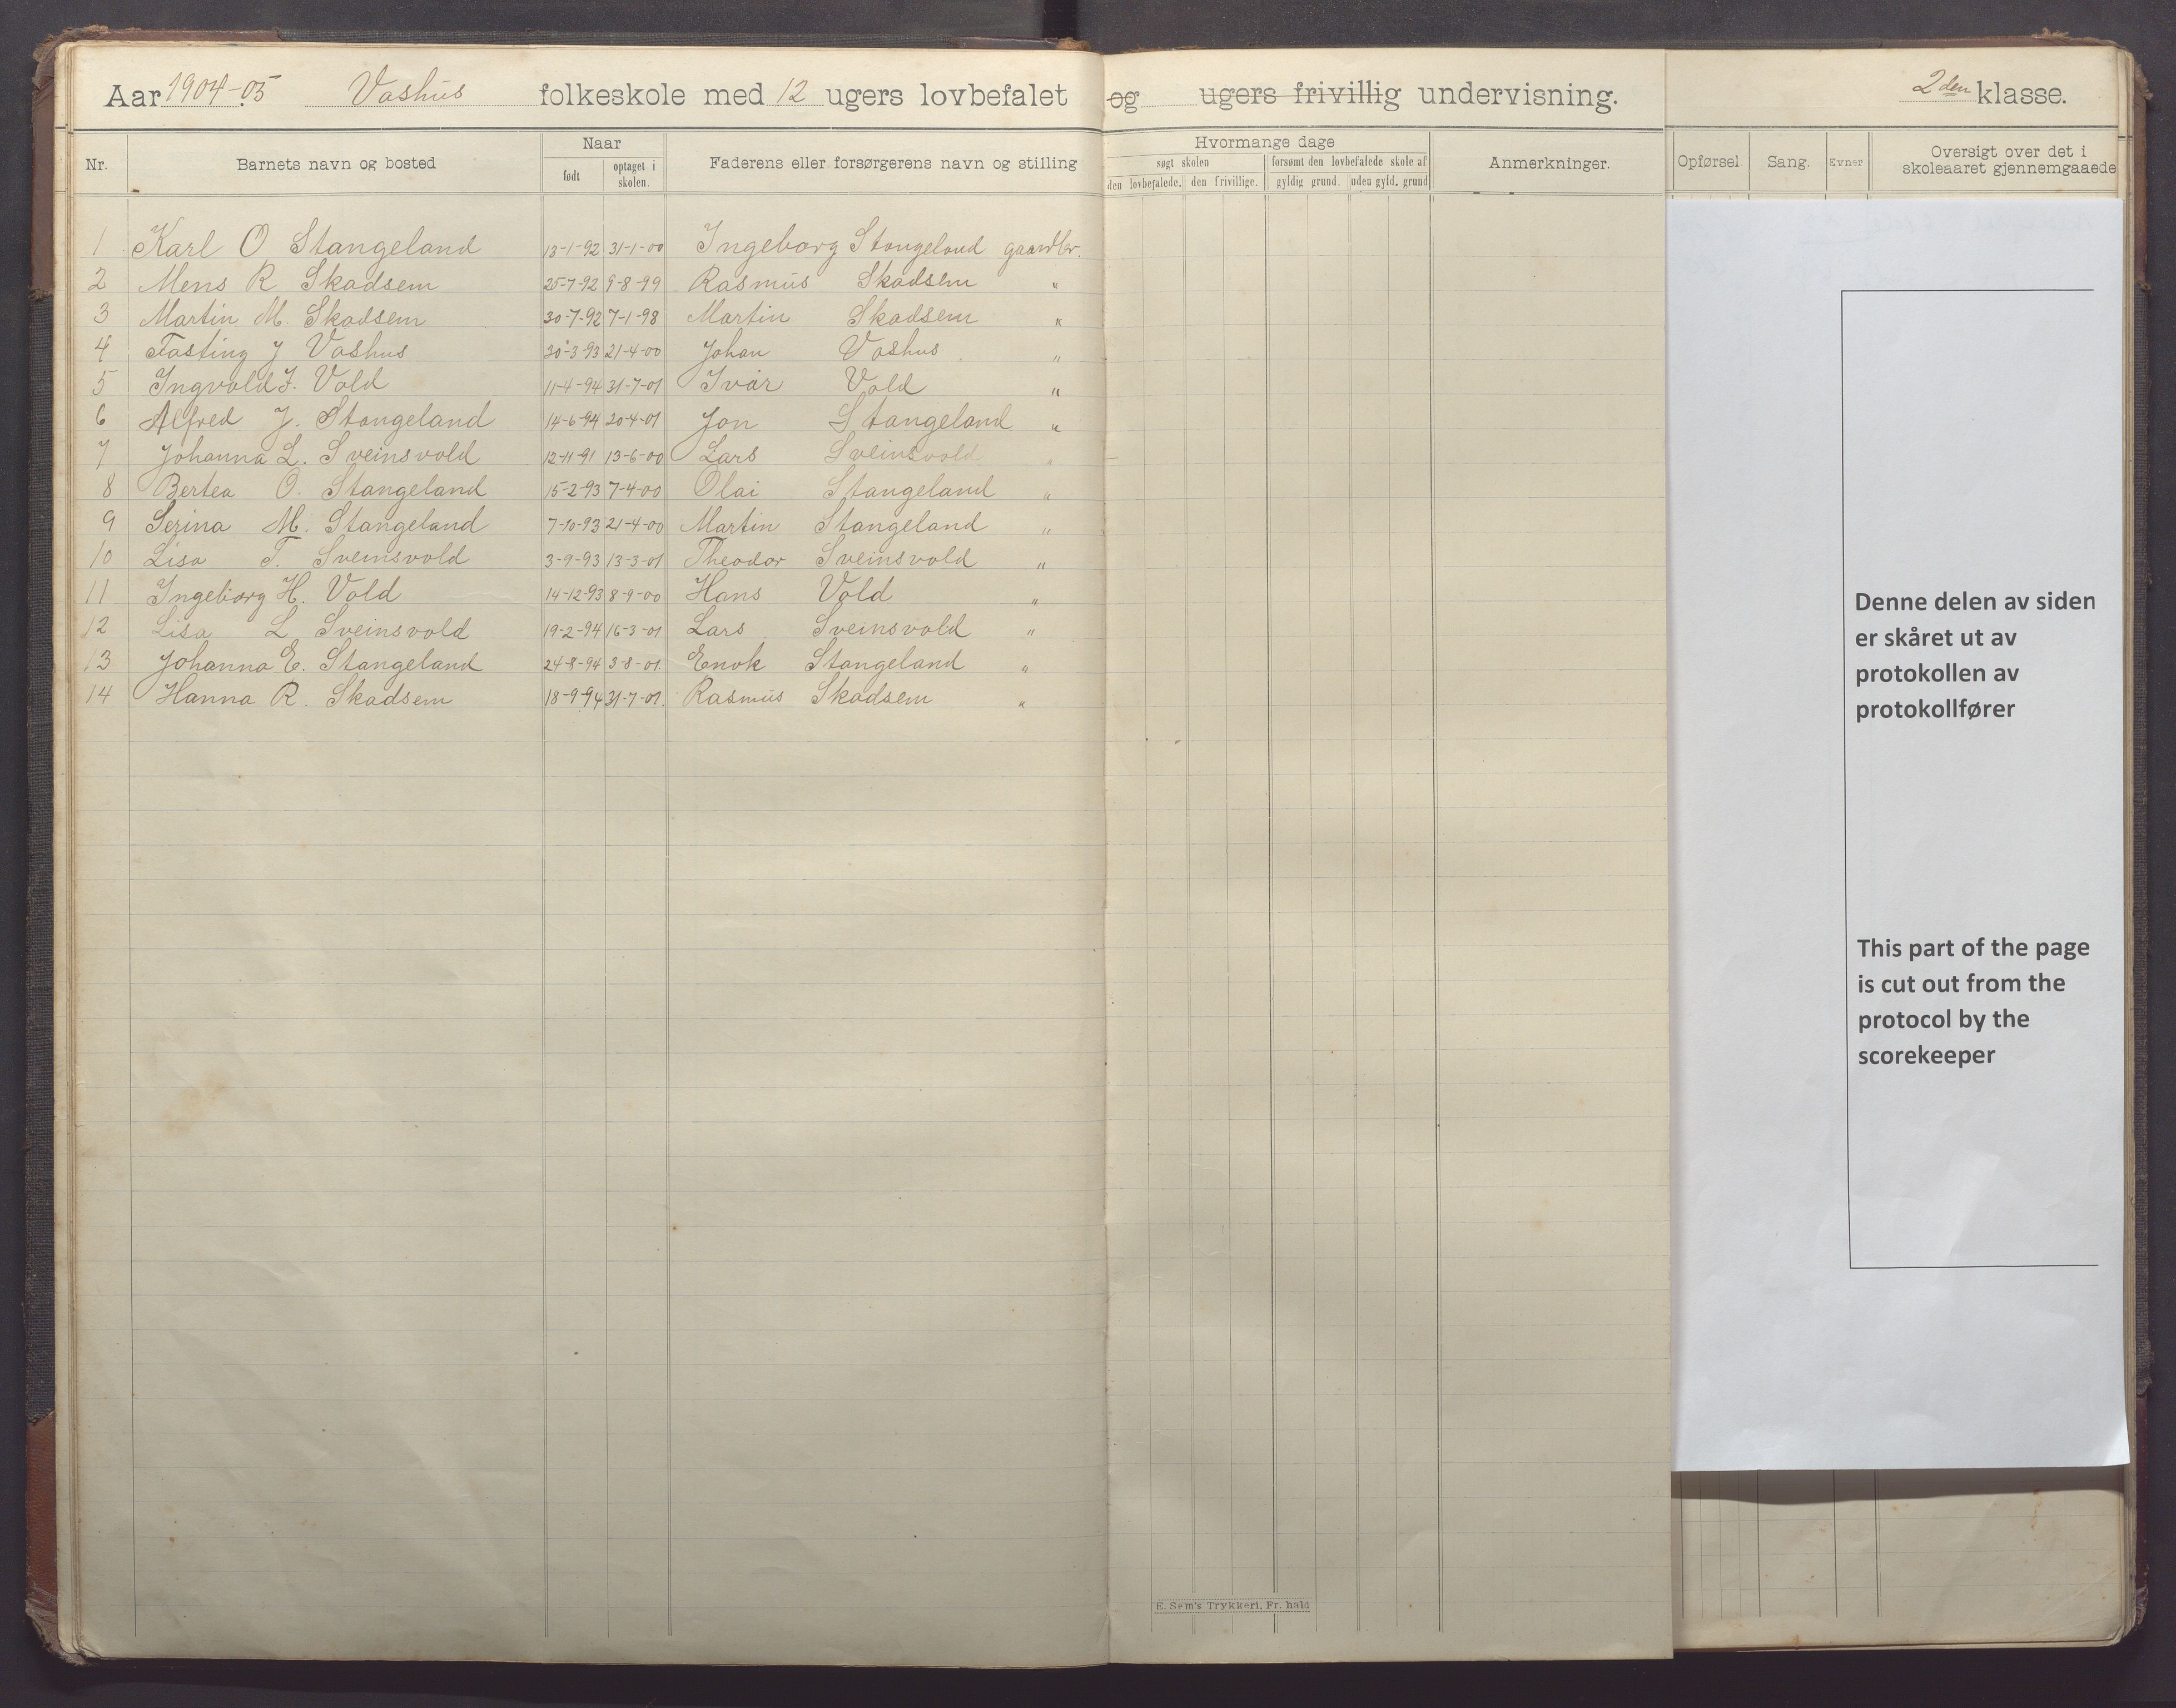 Aar 1904-05 Vashus folkeskole med 12 ugers lovbefalet og ugers frivillig undervisning. 2den klasse.
Nr. Barnets navn og bosted Naar født optaget i skolen. Faderens eller forsørgerens navn og stilling Hvormange dage søgt skolen den lovbefalede. den frivillige. forsømt den lovbefalede skole af gyldig grund. uden gyld. grund Anmerkninger. Opførsel Sang. Evner Oversigt over det i skoleaaret gjennemgaaede
1 Karl O Stangeland 13-1-92 31-1-00 Ingeborg Stangeland gaardbr.
2 Mens R Skadsem 25-7-92 9-8-99 Rasmus Skadsem "
3 Martin M. Skadsem 30-7-92 7-1-98 Martin Skadsem "
4 Fasting J Vashus 30-3-93 21-4-00 Johan Vashus "
5 Ingvald I. Vold 11-4-94 31-7-01 Ivar Vold "
6 Alfred J. Stangeland 14-6-94 20-4-01 Jon Stangeland "
7 Johanna L. Sveinsvold 12-11-91 13-6-00 Lars Sveinsvold "
8 Bertea O. Stangeland 15-2-93 7-4-00 Olai Stangeland "
9 Serina M. Stangeland 7-10-93 21-4-00 Martin Stangeland "
10 Lisa T. Sveinsvold 3-9-93 13-3-01 Theodor Sveinsvold "
11 Ingeborg H. Vold 14-12-93 8-9-00 Hans Vold "
12 Lisa L Sveinsvold 19-2-94 16-3-01 Lars Sveinsvold "
13 Johanna E. Stangeland 24-8-94 3-8-01. Enok Stangeland "
14 Hanna R. Skadsem 18-9-94 31-7-01. Rasmus Skadsem "
Denne delen av siden
er skåret ut av
protokollen av
protokollfører
This part of the page
is cut out from the
protocol by the
scorekeeper
E. Sem's Trykkeri, Fr. hald